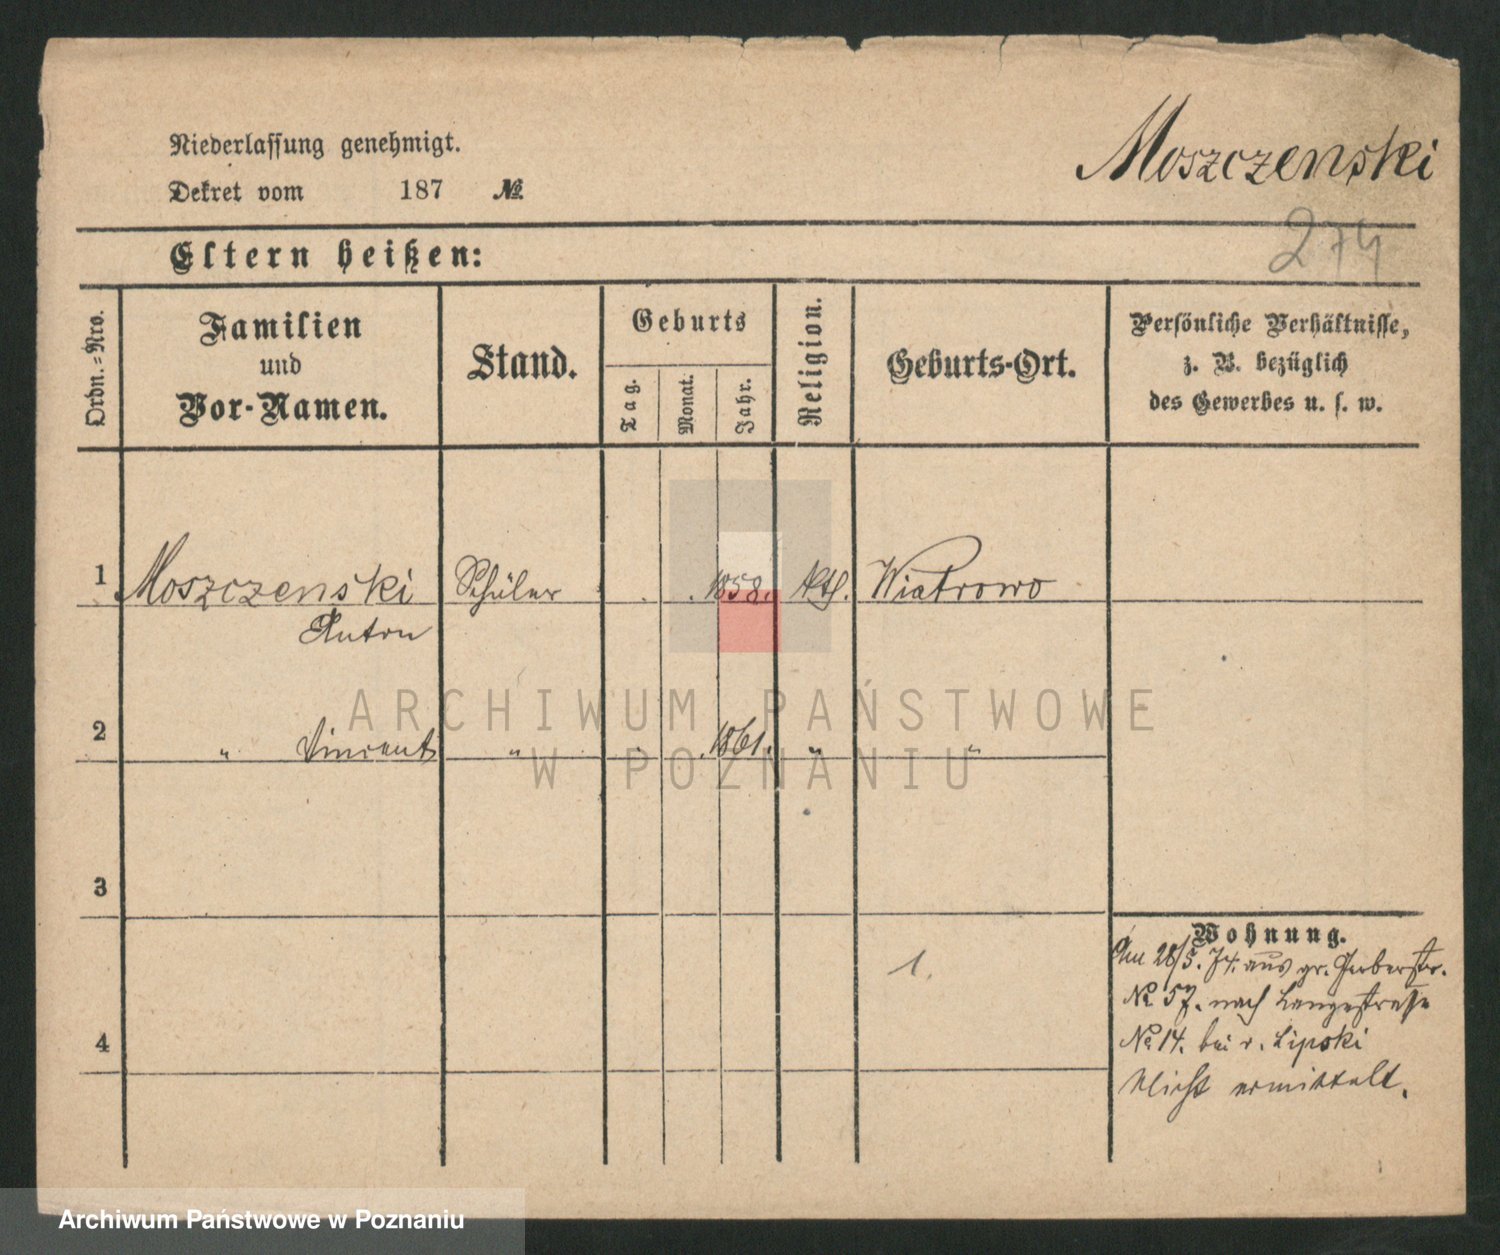 Niederlassung genehmigt.
Dekret vom 187 №
Moszczenski
274
Eltern heißen:
Ordn.-Nro.
Familien
und
Vor-Namen.
Stand.
Geburts
Tag.
Monat.
Jahr.
Religion.
Geburts-Ort.
Persönliche Verhältnisse,
z. B. bezüglich
des Gewerbes u. s. w.
1 Moszczenski Schüler . . 1858. kth. Wiatrowo
Anton
2 " Vincent " . . 1861. " "
3
Wohnung.
Am 28/5. 74. aus gr. Gerberstr.
№ 57. nach Langestrasse
1.
№ 14. bei v. Lipski
4
Nicht ermittelt.
ARCHIWUM PAŃSTWOWE
W POZNANIU
Archiwum Państwowe w Poznaniu